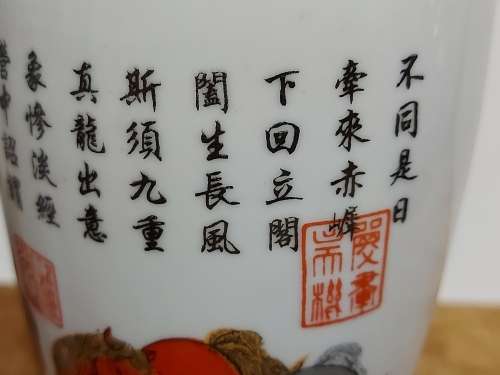 不同是日
牽來赤墀
下回立閣
闔生長風
斯須九重
真龍出意
象慘淡經
營中詔謂